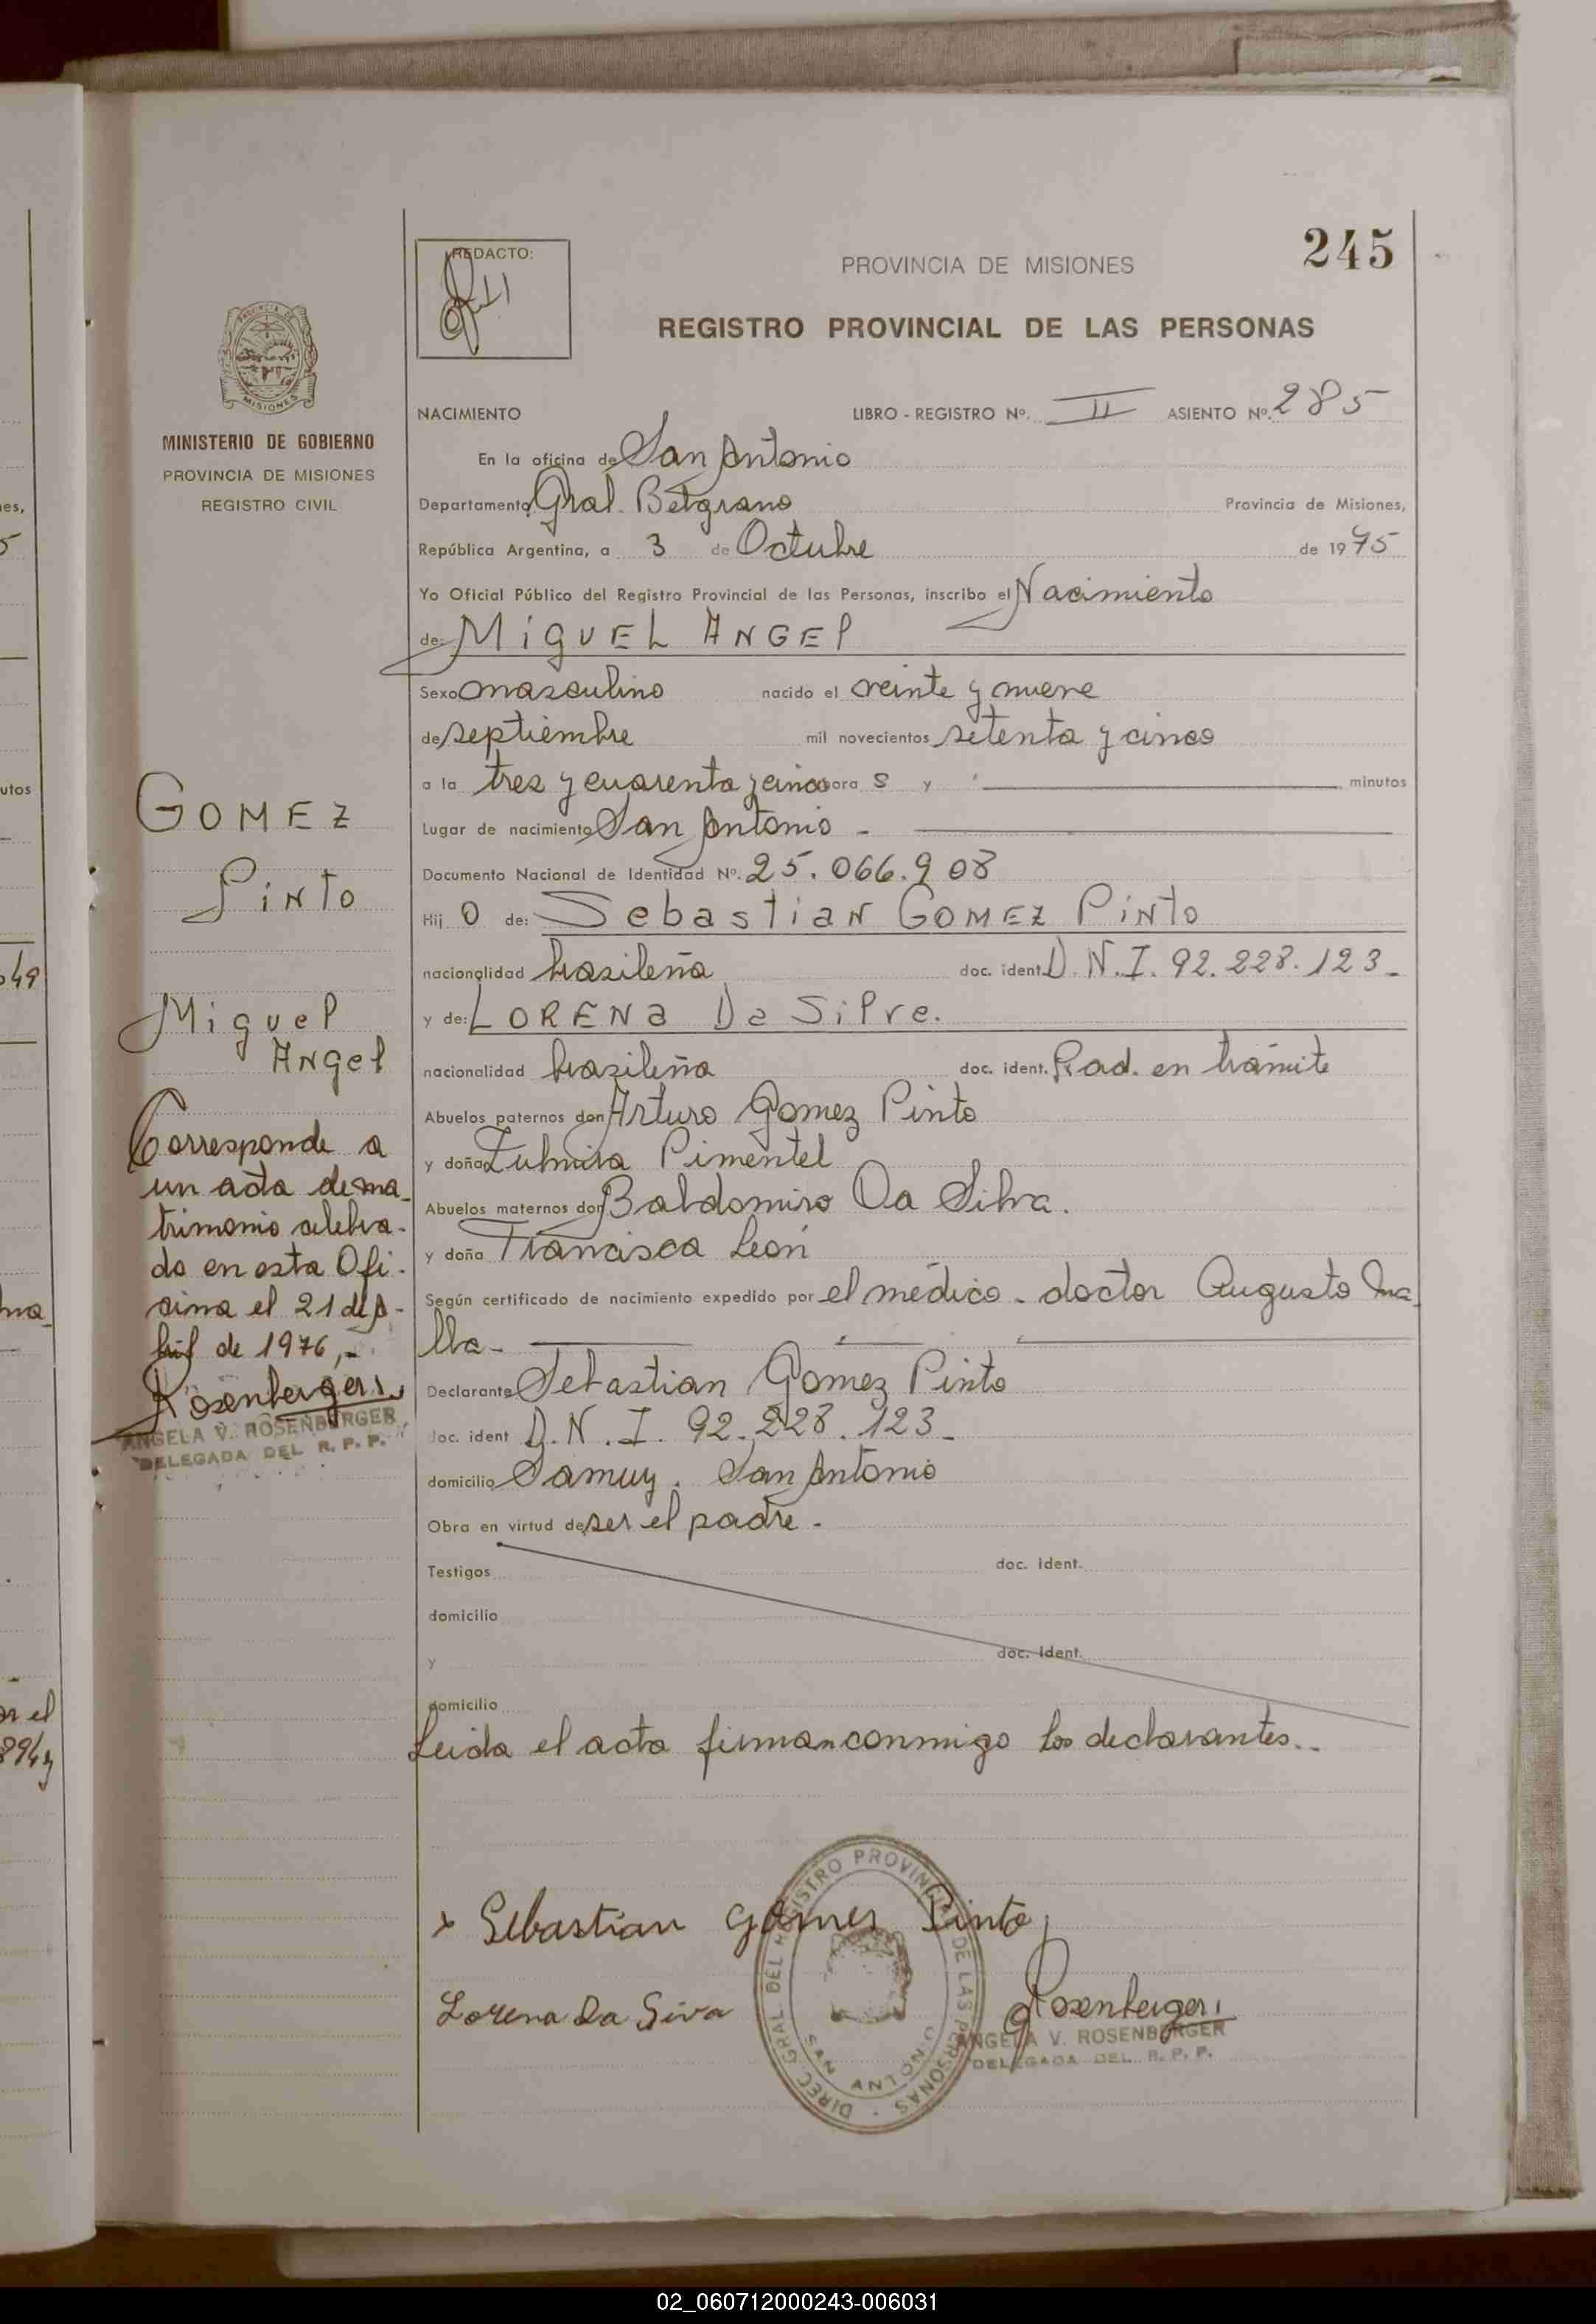 245
REDACTO:
PROVINCIA DE MISIONES
REGISTRO PROVINCIAL DE LAS PERSONAS
PROVINCIA DE
MISIONES
MINISTERIO DE GOBIERNO
PROVINCIA DE MISIONES
REGISTRO CIVIL
NACIMIENTO LIBRO - REGISTRO Nº. II ASIENTO Nº. 285
En la oficina de San Antonio
Departamento Gral. Belgrano Provincia de Misiones,
República Argentina, a 3 de Octubre de 1975
Yo Oficial Público del Registro Provincial de las Personas, inscribo el Nacimiento
de: MIGUEL ANGEL
Sexo masculino nacido el veinte y nueve
de septiembre mil novecientos setenta y cinco
a la tres y cuarenta y cinco hora s y minutos
Lugar de nacimiento San Antonio -
Documento Nacional de Identidad Nº. 25.066.908
Hij o de: Sebastian GOMEZ Pinto
nacionalidad brasileña doc. ident. D.N.I. 92.228.123-
y de: LORENA Da Silva.
nacionalidad brasileña doc. ident. Rad. en trámite
Abuelos paternos don Arturo Gomez Pinto
y doña Pimentel
Abuelos maternos don Baldomiro Da Silva.
y doña Francisca León
Según certificado de nacimiento expedido por el médico - doctor Augusto Ma-
lla-
Declarante Sebastian Gomez Pinto
doc. ident D.N.I. 92.228.123-
domicilio Samuy. San Antonio
Obra en virtud de ser el padre -
Testigos doc. ident.
domicilio
y doc. ident.
domicilio
Leida el acta firman conmigo los declarantes..
GOMEZ
Pinto
Miguel
Angel
Corresponde a
un acta de ma-
trimonio celebra-
do en esta Ofi-
cina el 21 de A-
bril de 1976,-
Rosenberger
ANGELA V. ROSENBERGER
DELEGADA DEL R. P. P.
x Sebastian gomes Pinto
Lorena Da Siva
Rosenberger
ANGELA V. ROSENBERGER
DELEGADA DEL R. P. P.
DIREC GRAL DEL REGISTRO PROVINCIAL DE LAS PERSONAS
SAN ANTONIO
nes,
5
utos
049
ma
or el
894y
02_060712000243-006031